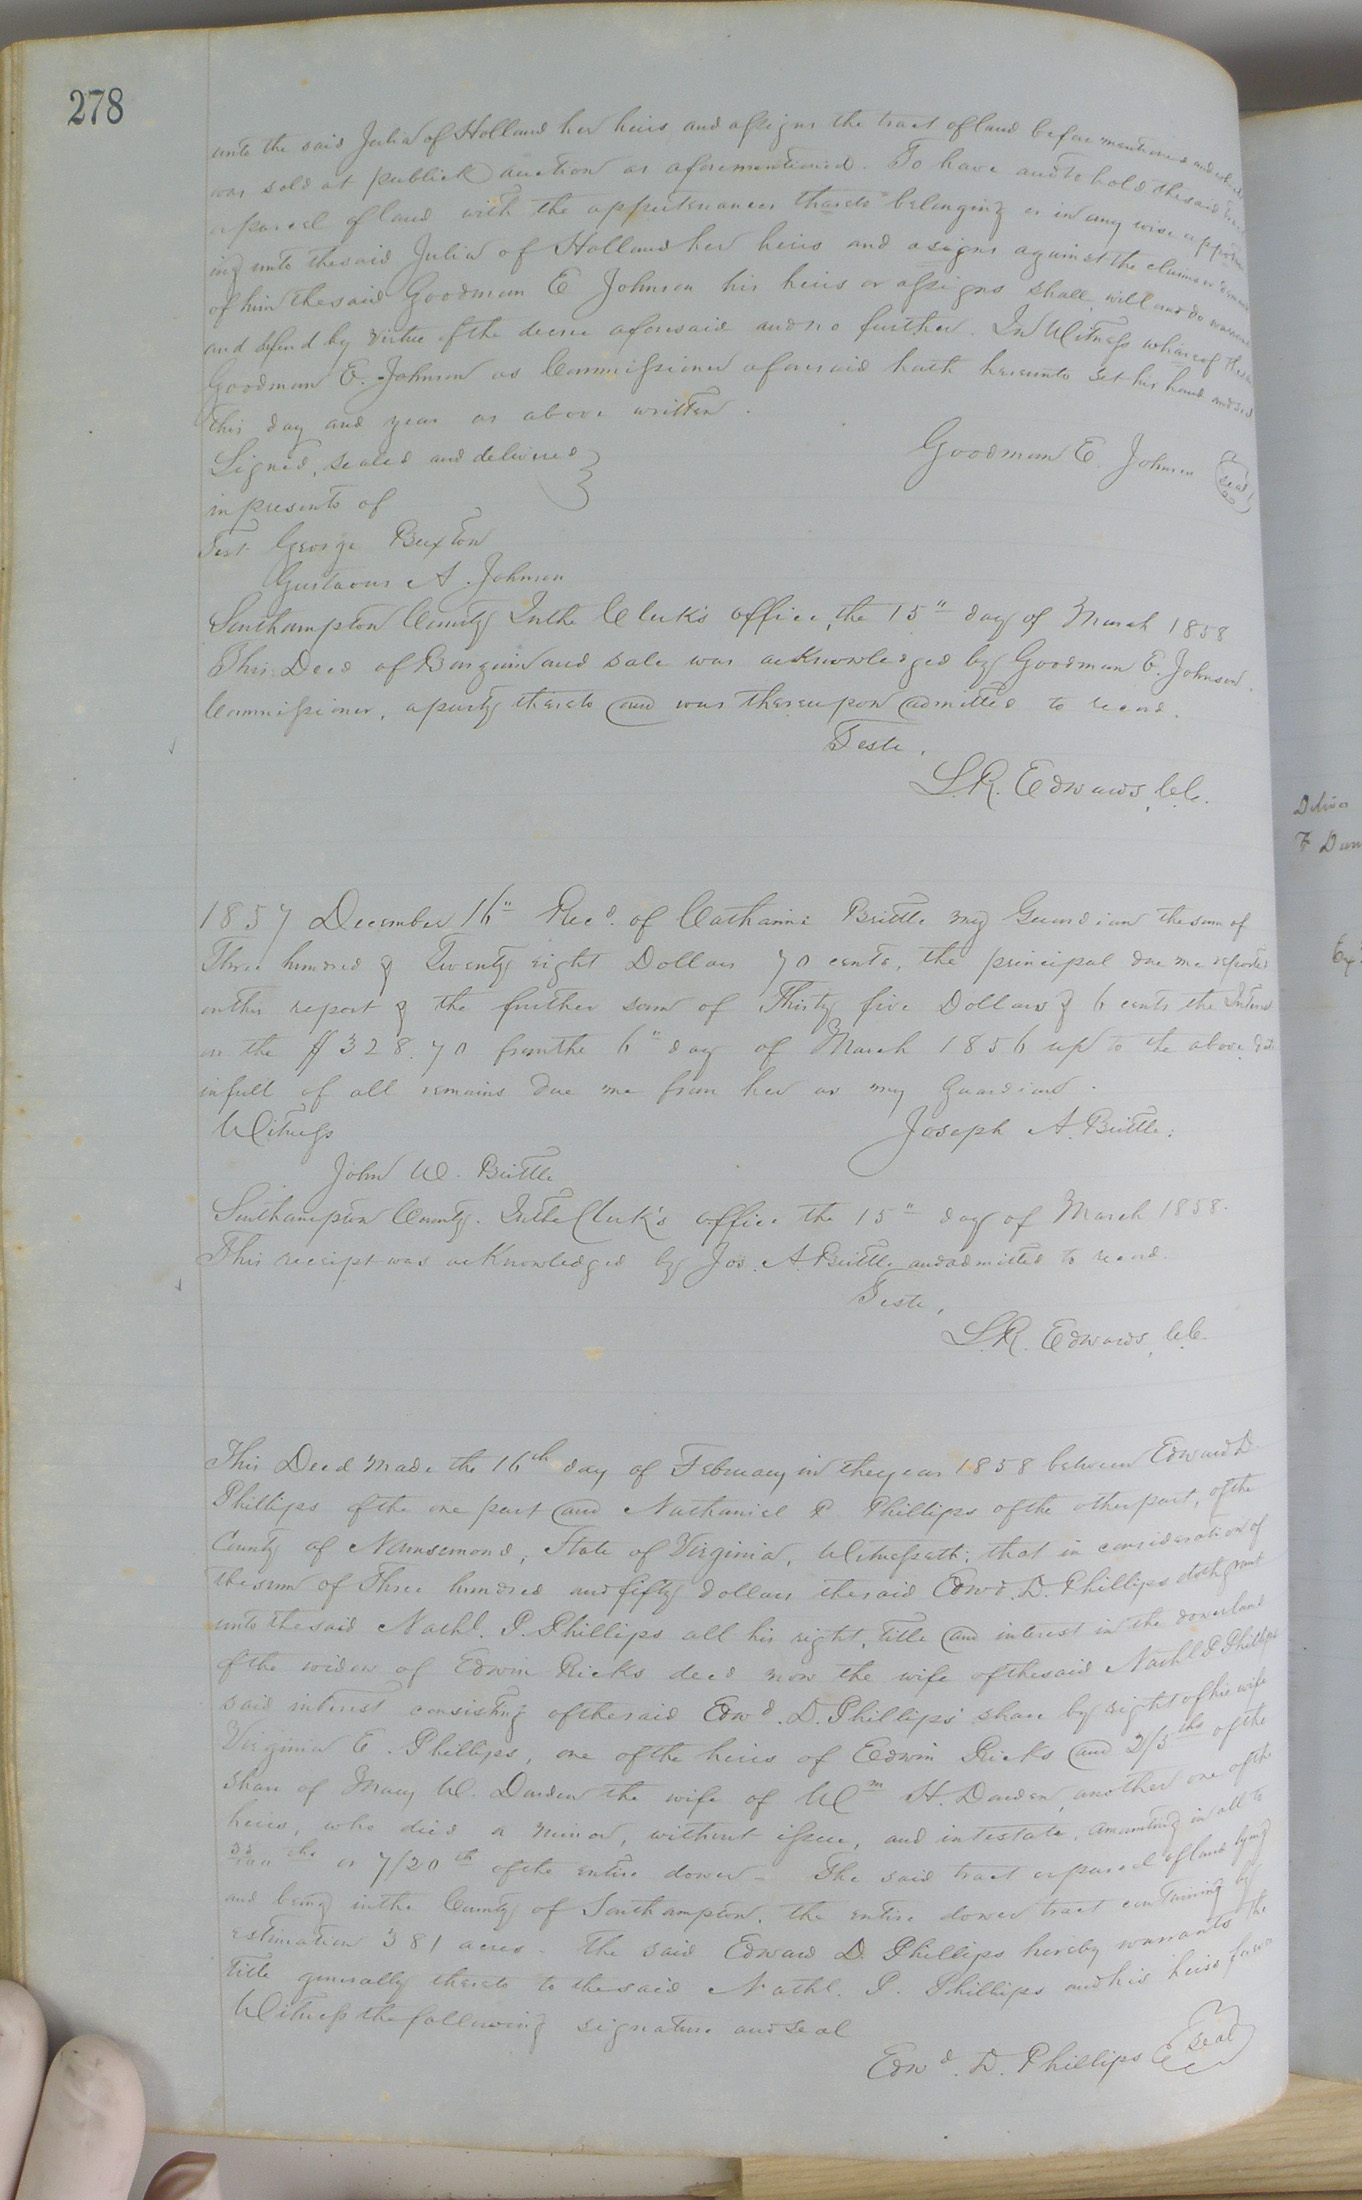 278
unto the said Julia of Holland her heirs and assigns the tract of land before mentioned and which
was sold at publick auction as aforementioned. To have and to hold the said tract
or parcel of land with the appurtenances thereto belonging or in any wise appertain
ing unto the said Julia of Holland her heirs and assigns against the claims or demands
of him the said Goodman E Johnson his heirs or assigns shall will and do warrant
and defend by virtue of the decree aforesaid and no further. In Witness whereof the said
Goodman E. Johnson as Commissioner aforesaid hath hereunto set his hand and seal
this day and year as above written.
Signed, sealed and delivered
Goodman E. Johnson seal
in presents of
Test George Buxton
Gustavus A. Johnson
Southampton County In the Clerk's office, the 15" day of March 1858
This Deed of Bargain and sale was acknowledged by Goodman E. Johnson
Commissioner, a party thereto and was thereupon admitted to record.
Teste,
L.R. Edwards, C.C.
1857 December 16" Recd. of Catharine Brittle my Guardian the sum of
Three hundred & Twenty eight Dollars 70 cents, the principal due me reported
in this report & the further sum of Thirty five Dollars & 6 cents the Interest
on the $328.70 from the 6" day of March 1856 up to the above date
in full of all remains due me from her as my Guardian.
Witness
Joseph A. Brittle.
John W. Brittle
Southampton County. In the Clerk's office the 15" day of March 1858.
This receipt was acknowledged by Jos. A. Brittle and admitted to record.
Teste,
L.R. Edwards, C.C.
This Deed made the 16th day of February in the year 1858 between Edward D
Phillips of the one part and Nathaniel P Phillips of the other part, of the
County of Nansemond, State of Virginia, Witnesseth; that in consideration of
the sum of Three hundred and fifty dollars the said Edwd. D. Phillips doth grant
unto the said Nathl. P. Phillips all his right, title and interest in the dower land
of the widow of Edwin Ricks decd now the wife of the said Nathl P Phillips
said interest consisting of the said Edwd. D. Phillips' share by right of his wife
Virginia E. Phillips, one of the heirs of Edwin Ricks and 2/5ths of the
share of Mary W. Darden the wife of Wm H. Darden, another one of the
heirs, who died a minor, without issue, and intestate, amounting in all to
ths or 7/20th of the entire dower - The said tract or parcel of land lying
and being in the County of Southampton, the entire dower tract containing by
estimation 381 acres. The said Edward D. Phillips hereby warrants the
title generally thereto to the said Nathl. P. Phillips and his heirs forever
Witness the following signature and seal
Edwd. D. Phillips seal